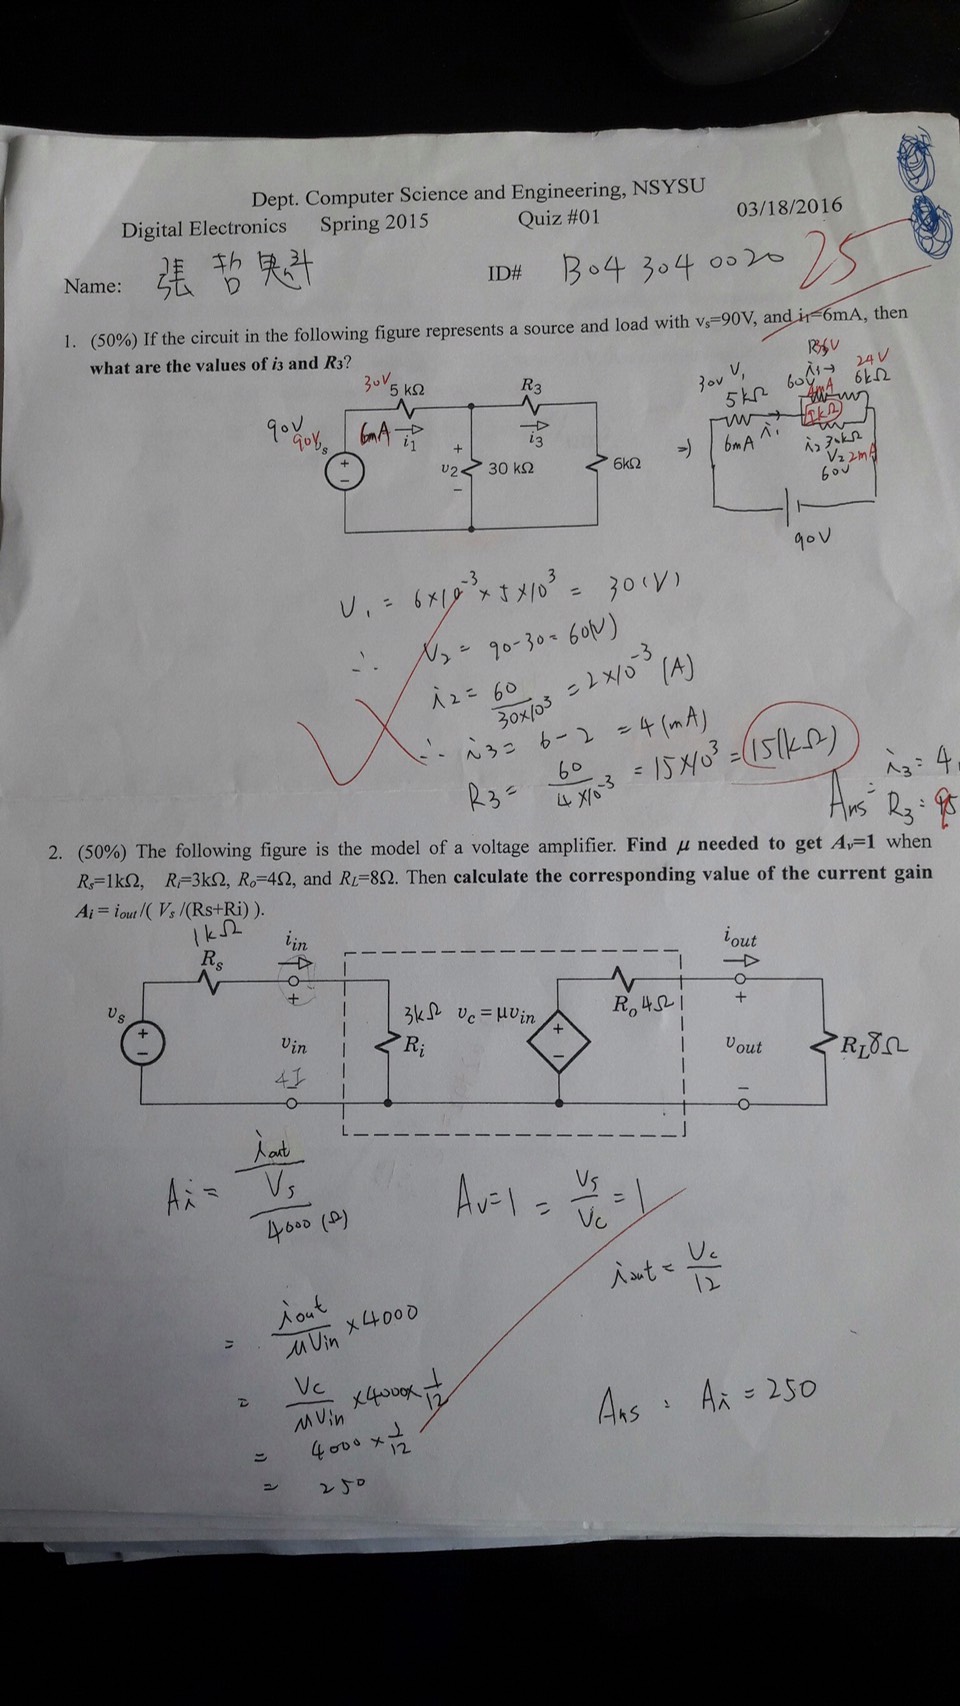 Dept. Computer Science and Engineering, NSYSU
Digital Electronics Spring 2015 Quiz #01 03/18/2016
Name: 張哲魁 ID# B043040020 25
1. (50%) If the circuit in the following figure represents a source and load with vs=90V, and i1=6mA, then
what are the values of i3 and R3?
30V 5 kΩ R3
90V 90Vs 6mA i1 i3
+
v2 30 kΩ 6kΩ
−
30V V1 i1→ 24V
5kΩ 60V 4mA 6kΩ
6mA i1 i2 30kΩ
V2 2mA
60V
90V
V1 = 6×10⁻³ × 5×10³ = 30(V)
∴ V2 = 90-30 = 60(V)
i2 = 60/30×10³ = 2×10⁻³ (A)
∴ i3 = 6-2 = 4(mA)
R3 = 60/4×10⁻³ = 15×10³ = 15(kΩ)
Ans: i3 = 4
R3 =
2. (50%) The following figure is the model of a voltage amplifier. Find μ needed to get Av=1 when
Rs=1kΩ, Ri=3kΩ, Ro=4Ω, and RL=8Ω. Then calculate the corresponding value of the current gain
Ai = iout/( Vs /(Rs+Ri) ).
1kΩ
Rs iin iout
vs + − + vin 4I − 3kΩ Ri vc = μvin + − Ro 4Ω + vout − RL 8Ω
Ai = iout / Vs / 4000(Ω)
Av=1 = Vs/Vc = 1
iout = Vc/12
= iout/μVin ×4000
= Vc/μVin ×4000× 1/12
= 4000 × 1/12
= 250
Ans : Ai = 250